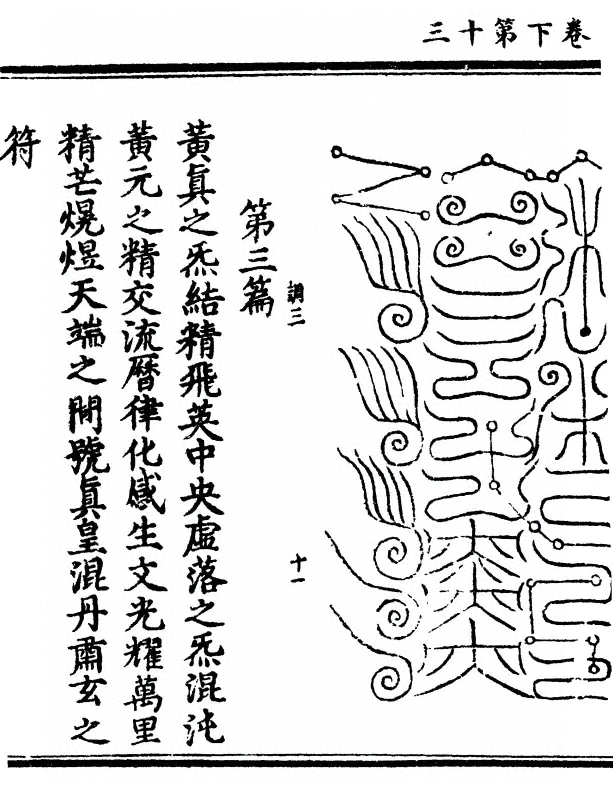 卷下第十三
調三
十一
第三篇
黃眞之炁結精飛英中央虛落之炁混沌
黃元之精交流曆律化感生文光耀萬里
精芒熀煜天端之間號眞皇混丹肅玄之
符